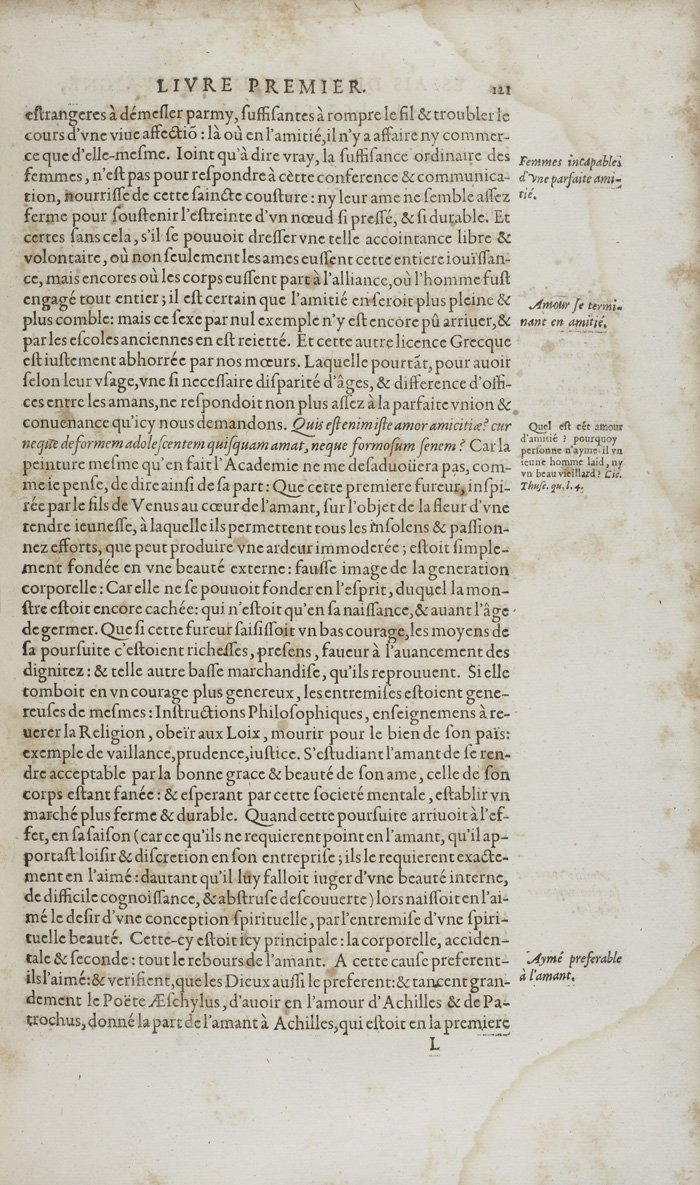 LIVRE PREMIER. 121
eſtrangeres à démeſler parmy, ſuffiſantes à rompre le fil & troubler le
cours d'vne viue affectiō : là où en l'amitié, il n'y a affaire ny commer-
ce que d'elle-meſme. Ioint qu'à dire vray, la ſuffiſance ordinaire des
femmes, n'eſt pas pour reſpondre à cète conference & communica-
tion, nourriſſe de cette ſaincte couſture : ny leur ame ne ſemble aſſez
ferme pour ſouſtenir l'eſtreinte d'vn nœud ſi preſſé, & ſi durable. Et
certes ſans cela, s'il ſe pouuoit dreſſer vne telle accointance libre &
volontaire, où non ſeulement les ames euſſent cette entiere iouïſſan-
ce, mais encores où les corps euſſent part à l'alliance, où l'homme fuſt
engagé tout entier ; il eſt certain que l'amitié en ſeroit plus pleine &
plus comble : mais ce ſexe par nul exemple n'y eſt encore pû arriuer, &
par les eſcoles anciennes en eſt reietté. Et cette autre licence Grecque
eſt iuſtement abhorrée par nos mœurs. Laquelle pourtāt, pour auoir
ſelon leur vſage, vne ſi neceſſaire diſparité d'âges, & difference d'offi-
ces entre les amans, ne reſpondoit non plus aſſez à la parfaite vnion &
conuenance qu'icy nous demandons. Quis eſt enim iſte amor amicitiæ? cur
neque deformem adoleſcentem quiſquam amat, neque formoſum ſenem? Car la
peinture meſme qu'en fait l'Academie ne me deſaduoüera pas, com-
me ie penſe, de dire ainſi de ſa part : Que cette premiere fureur, inſpi-
rée par le fils de Venus au cœur de l'amant, ſur l'objet de la fleur d'vne
tendre ieuneſſe, à laquelle ils permettent tous les inſolens & paſſion-
nez efforts, que peut produire vne ardeur immoderée ; eſtoit ſimple-
ment fondée en vne beauté externe : fauſſe image de la generation
corporelle : Car elle ne ſe pouuoit fonder en l'eſprit, duquel la mon-
ſtre eſtoit encore cachée : qui n'eſtoit qu'en ſa naiſſance, & auant l'âge
de germer. Que ſi cette fureur ſaiſiſſoit vn bas courage, les moyens de
ſa pourſuite c'eſtoient richeſſes, preſens, faueur à l'auancement des
dignitez : & telle autre baſſe marchandiſe, qu'ils reprouuent. Si elle
tomboit en vn courage plus genereux, les entremiſes eſtoient gene-
reuſes de meſmes : Inſtructions Philoſophiques, enſeignemens à re-
uerer la Religion, obeïr aux Loix, mourir pour le bien de ſon païs:
exemple de vaillance, prudence, iuſtice. S'eſtudiant l'amant de ſe ren-
dre acceptable par la bonne grace & beauté de ſon ame, celle de ſon
corps eſtant fanée : & eſperant par cette ſocieté mentale, eſtablir vn
marché plus ferme & durable. Quand cette pourſuite arriuoit à l'ef-
fet, en ſa ſaiſon (car ce qu'ils ne requierent point en l'amant, qu'il ap-
portaſt loiſir & diſcretion en ſon entrepriſe ; ils le requierent exacte-
ment en l'aimé : dautant qu'il luy falloit iuger d'vne beauté interne,
de difficile cognoiſſance, & abſtruſe deſcouuerte) lors naiſſoit en l'ai-
mé le deſir d'vne conception ſpirituelle, par l'entremiſe d'vne ſpiri-
tuelle beauté. Cette-cy eſtoit icy principale : la corporelle, acciden-
tale & ſeconde : tout le rebours de l'amant. A cette cauſe preferent-
ils l'aimé : & verifient, que les Dieux auſſi le preferent : & tancent gran-
dement le Poëte Æſchylus, d'auoir en l'amour d'Achilles & de Pa-
trochus, donné la part de l'amant à Achilles, qui eſtoit en la premiere
L
Femmes incapables
d'vne parfaite ami-
tié.
Amour ſe termi-
nant en amitié.
Quel eſt cét amour
d'amitié ? pourquoy
perſonne n'ayme-il vn
ieune homme laid, ny
vn beau vieillard ? Cic.
Thuſc. qu. l. 4.
Aymé preferable
à l'amant.